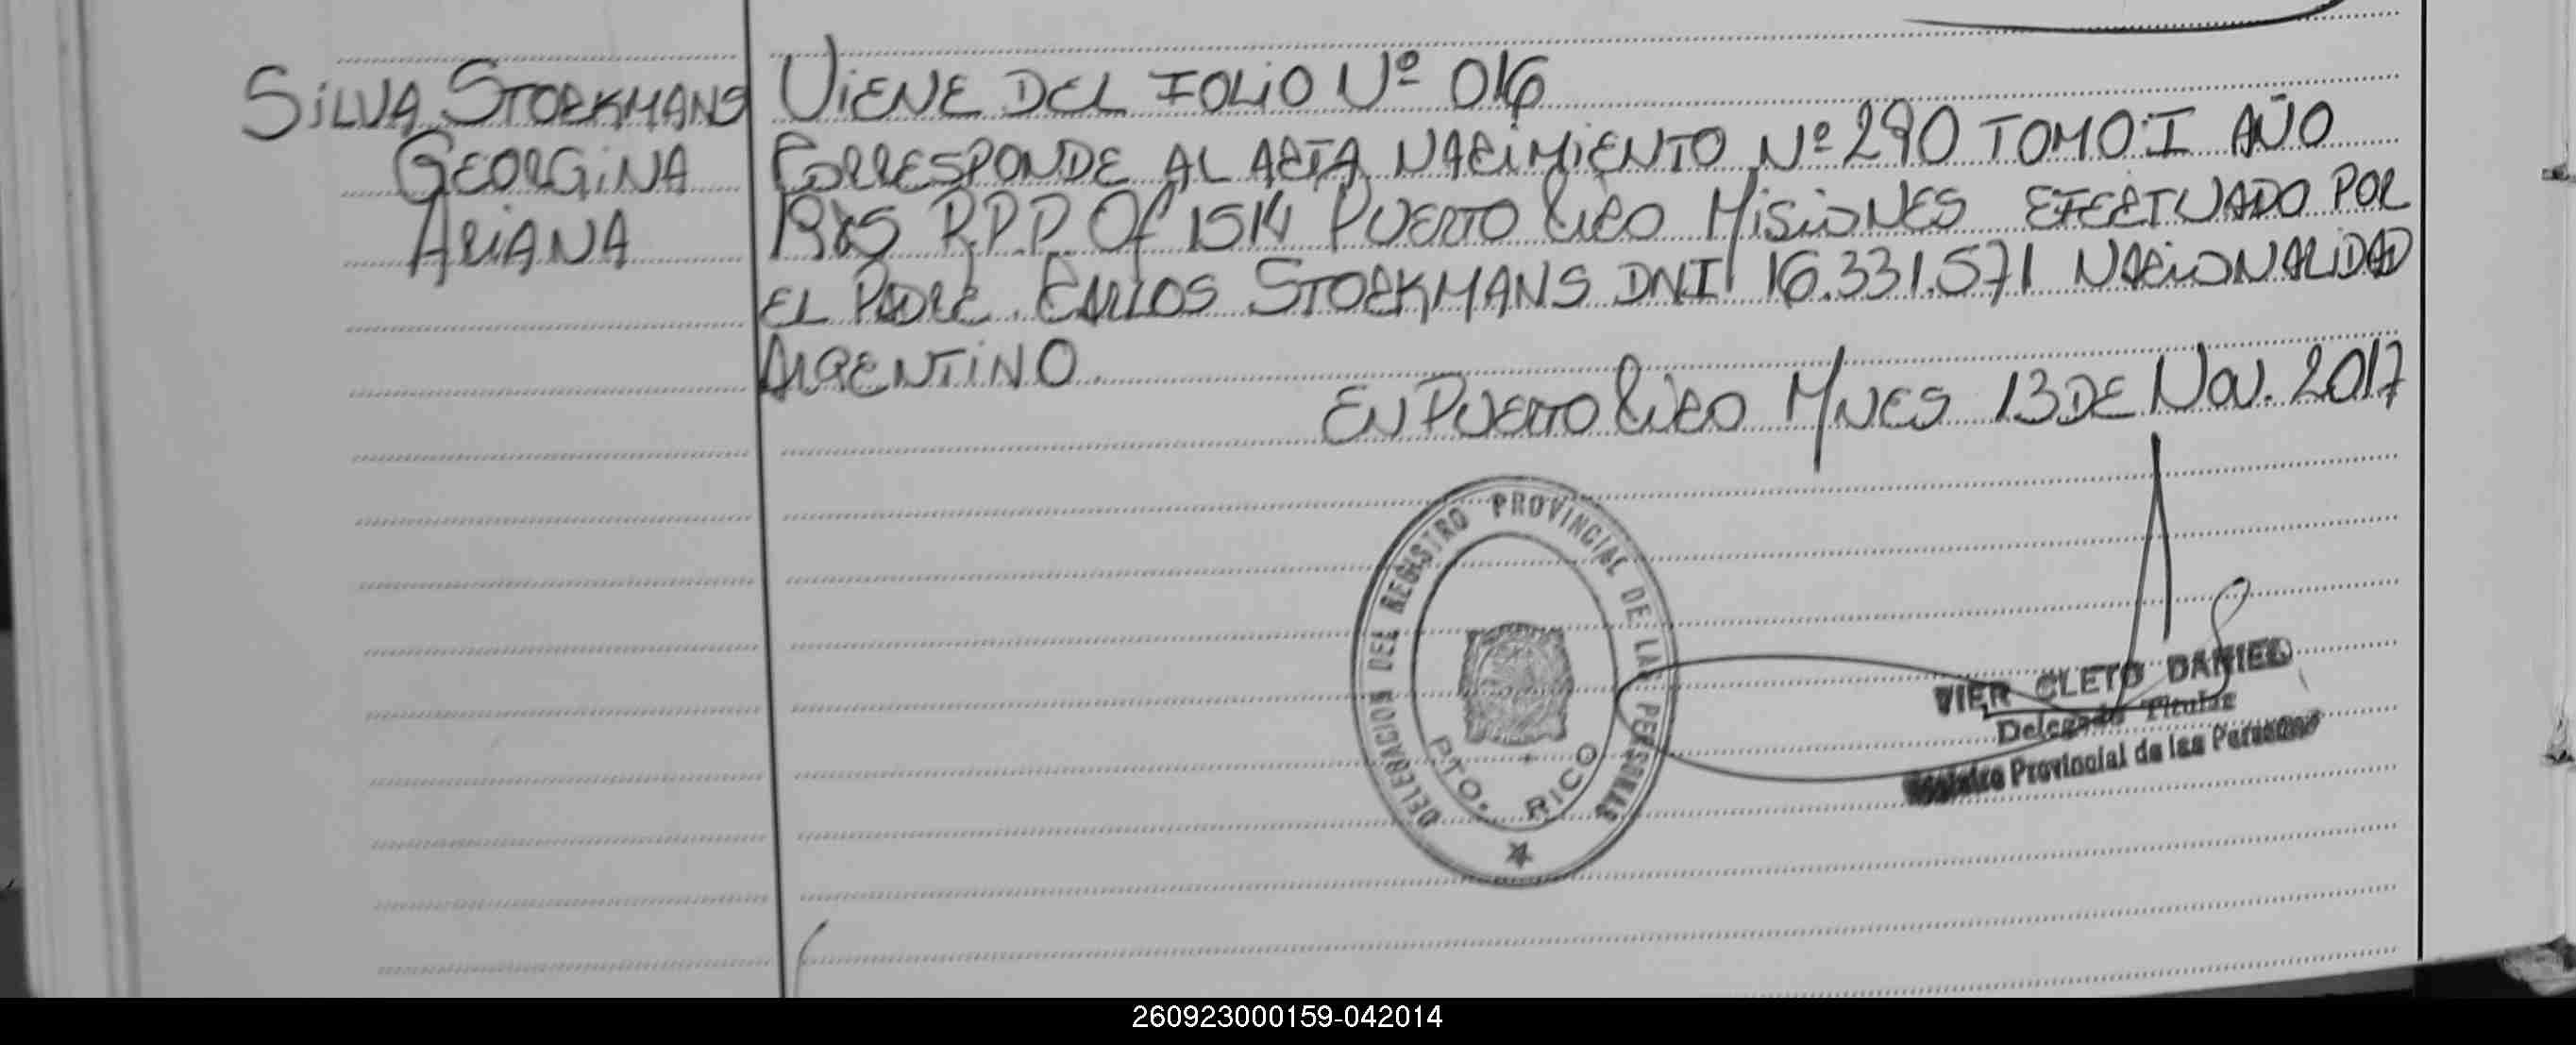 SILVA STOCKMANS
GEORGINA
ARIANA
VIENE DEL FOLIO Nº 016
CORRESPONDE AL ACTA NACIMIENTO Nº 290 TOMO I AÑO
1985 R.P.P. Of 1514 PUERTO RICO MISIONES EFECTUADO POR
EL PADRE CARLOS STOCKMANS DNI 16.331.571 NACIONALIDAD
ARGENTINO.
EN PUERTO RICO MNES 13 DE NOV. 2017
DELEGACION DEL REGISTRO PROVINCIAL DE LAS PERSONAS
PTO. RICO
VIER CLETO DANIEL
Delegado Titular
Registro Provincial de las Personas
260923000159-042014